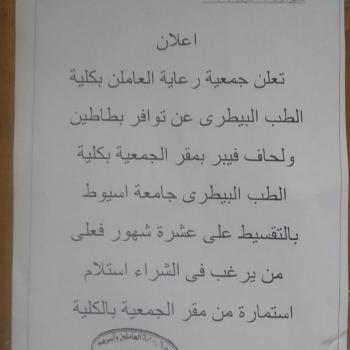 اعلان
تعلن جمعية رعاية العاملن بكلية
الطب البيطرى عن توافر بطاطين
ولحاف فيبر بمقر الجمعية بكلية
الطب البيطرى جامعة اسيوط
بالتقسيط على عشرة شهور فعلى
من يرغب فى الشراء استلام
استمارة من مقر الجمعية بالكلية
العاملين وأسرهم